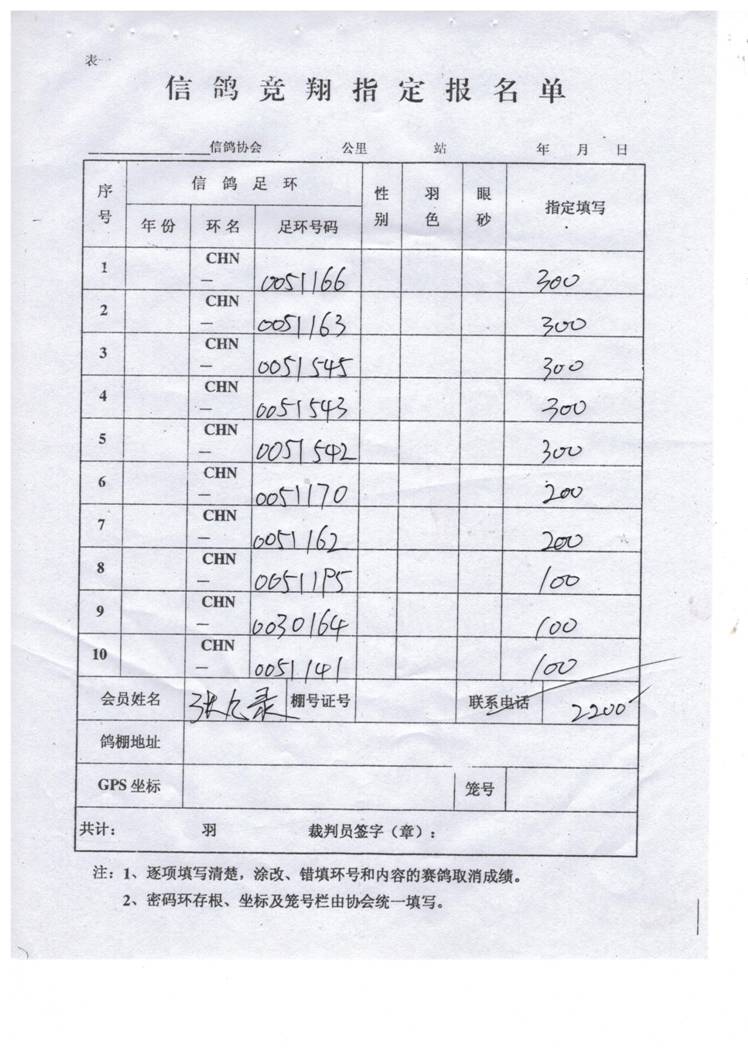 表一
信鸽竞翔指定报名单
信鸽协会 公里 站 年 月 日
序号 信鸽足环 性别 羽色 眼砂 指定填写
年份 环名 足环号码
1 CHN— 0051166 300
2 CHN— 0051163 300
3 CHN— 0051545 300
4 CHN— 0051543 300
5 CHN— 0051542 300
6 CHN— 0051170 200
7 CHN— 0051162 200
8 CHN— 100
9 CHN— 0030164 100
10 CHN— 0051141 100
会员姓名 张 录 棚号证号 联系电话 2200
鸽棚地址
GPS 坐标 笼号
共计: 羽 裁判员签字(章):
注:1、逐项填写清楚,涂改、错填环号和内容的赛鸽取消成绩。
2、密码环存根、坐标及笼号栏由协会统一填写。